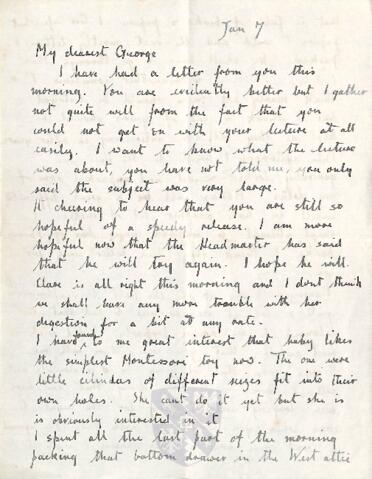 Jan 7
My dearest George
I have had a letter from you this
morning. You are evidently better but I gather
not quite well from the fact that you
could not get on with your lecture at all
easily. I want to know what the lecture
was about, you have not told me, you only
said the subject was very large.
It cheering to hear that you are still so
hopeful of a speedy release. I am more
hopeful now that the Headmaster has said
that he will try again. I hope he will.
Clare is all right this morning and I dont think
we shall have any more trouble with her
digestion for a bit at any rate.
I have, to me great interest that baby likes
the simplest Montessori toy now. The one were
little cilinders of different seizes fit into their
own holes. She cant do it yet but she is
is obviously interested in it
I spent all the last part of the morning
packing that bottom drawer in the West attic